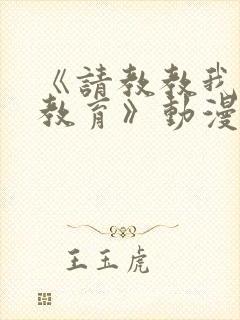 《請教教我
教育》動漫
王玉虎